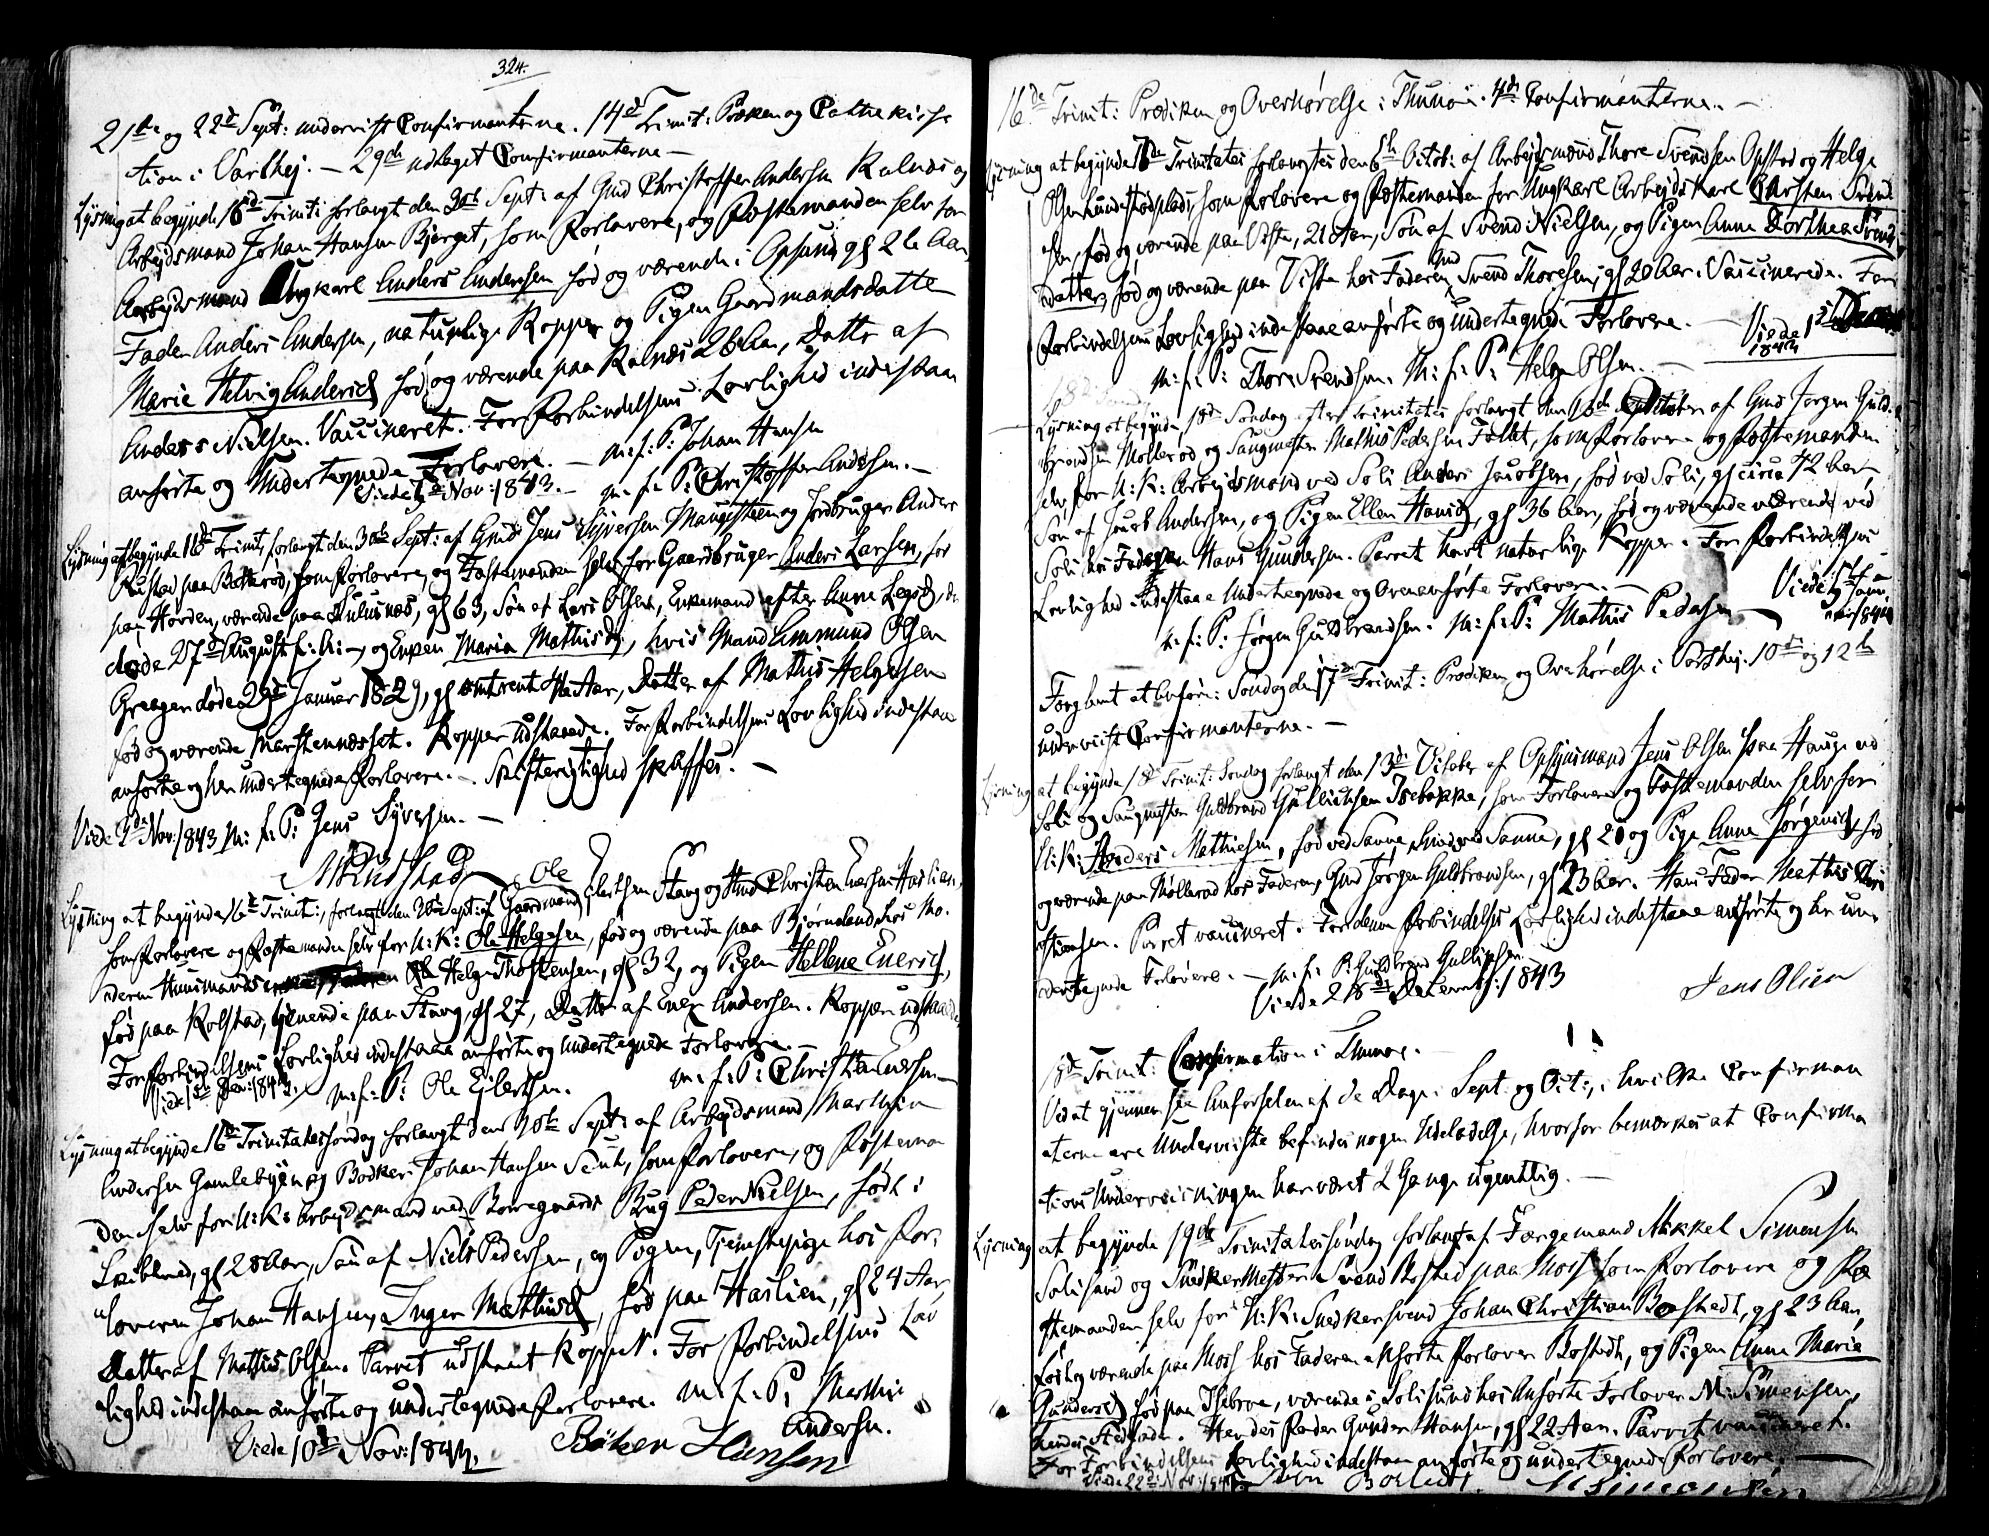 324.
21de og 22d Sept: underviist Confirmanterne. 14d Trinit: Præken og Cathechisa
tion i Varthej. — 29de udtaget Confirmanterne —
Lysning at begynde 16d Triniti forlangt den 30te Sept: af Gmd Christopher Andersen Kalnæs og
Arbejdsmand Johan Hansen Bjerget, som Forlovere, og Fæstemanden selv for
Arbejdsmand Ungkarl Anders Andersen fød og værende i Opsund gl 26 Aar,
Faderen Anders Andersen, naturlige Kopper og Pigen Gaardmandsdatter
Marie Helvig Andersd fød og værende paa Kalnæs 26 Aar, Datter af
Anders Nielsen. Vaccineret. For Forbindelsens Lovlighed indestaae
anførte og Undertegnede Forlovere. — m. f. P: Johan Hansen
Viede 3d Nov: 1843. — m. f. P: Christopher Andersen. —
Lysning at begynde 16d Trinit, forlangt den 30te Sept: af Gmd Jens Syversen Haugesteen og Jordbruger Anders
Rustad paa Bakkerød, som Forlovere, og Fæstemanden selv for Gaardbruger Anders Larsen, fød
paa Horden, værende paa Julusnæs, gl 63, Søn af Lars Olsen, Enkemand efter Anne Legsd, der
døde 27d August f: A: —, og Enken Maria Mathisd, hvis Mand Ammund Olsen
Greagen døde 29d Januar 1829, gl omtrent 46 Aar, Datter af Mathis Helgesen
fød og værende Marstennæsset. Kopper udstaaede. For Forbindelsens Lovlighed indestaae
anførte og her undertegnede Forlovere. — Skifterigtighed skaffes. —
Viede 9d Nov: 1843 m. f. P: Jens Syversen. —
ARustad
Lysning at begynde 16d Trinit:, forlangt den 30te Sept: af Gaardmand Ole Eilertsen Stang og Gmd Christen Enersen Haslien,
som Forlovere og Fæstemanden selv for U: K: Ole Helgesen, fød og værende paa Bjørneland hos Mo-
deren Huusmands Helge Thorstensen, gl 32, og Pigen Hellene Enersd,
fød paa Kolstad, tjenende paa Stang, gl 27, Datter af Ener Andersen. Kopper udstaaede
For Forbindelsens Lovlighed indestaae anførte og undertegnede Forlovere. —
m. f. P: Ole Eilertsen. m. f. P: Christen Enersen
Lysning at begynde 16d Trinitatissøndag forlangt den 20te Sept: af Arbejdsmand Marthin
Andersen Gamlebyen og Bødker Johan Hansen, som Forlovere, og Fæstema
den selv for U: K: Arbejdsmand ved Borregaards Brug Peder Nielsen, født i
Skibtved, gl 28 Aar, Søn af Niels Pedersen, og Pigen, Tjenestepige hos For-
loveren Johan Hansen, Inger Mathisd, fød paa Haslien, gl 24 Aar
Datter af Mathis Olsen. Parret udstaaet Kopper. For Forbindelsens Lov
lighed indestaae anførte og undertegnede Forlovere. m. f. P: Marthin
Andersen.
Viede 10d Nov: 1844. Hansen
16de Trinit: Prædiken og Overhørelse i Thunøe. 4d Confirmanterne. —
Lysning at begynde 18de Trinitatis forlangtes den 6te Octob: af Arbejdsmand Thore Svendsen Opstad og Helge
Olsen Hundstødplads, som Forlovere og Fæstemanden for Ungkarl Arbejdskarl Carsten Svend
sen, fød og værende paa Viste, 21 Aar, Søn af Svend Nielsen, og Pigen Anne Dorthea Svend
datter, fød og værende paa Viste hos Faderen Gmd Svend Thoresen, gl 20 Aar. Vaccinerede. For
Forbindelsens Lovlighed indestaae anførte og undertegnede Forlovere. — Viede 1ste
m. f. P: Thore Svendsen. m. f. P: Helge Olsen. —
Lysning at begynde 18d Søndag efter Trinitatis forlangt den 13d October af Gmd Jørgen Guld-
brandsen Møllerød og Saugmester Mathis Pedersen Follet, som Forlovere og Fæstemanden
selv for U: K: Arbejdsmand ved Soli Anders Jacobsen, fød ved Soli, gl circa 42 Aar
Søn af Jacob Andersen, og Pigen Ellen Hansd, gl 36 Aar, fød og værende ved
Soli hos Faderen Hans Gundersen. Parret havt naturlige Kopper. For Forbindelsens
Lovlighed indestaae Undertegnede og Ovenanførte Forlovere. — Viede 5te Janu
m. f. P: Jørgen Guldbrandsen. m. f. P: Mathis Pedersen
Forglemt at anføre: Søndag den 17d Trinit: Prædiken og Overhørelse i Varthej. 10de og 12te
underviist Confirmanterne. —
Lysning at begynde 18d Trinit: Søndag forlangt den 13d October af Opsynsmand Jens Olsen paa Hauge ved
Soli og Saugmester Guldbrand Gullichsen Isebakke, som Forlovere og Fæstemanden selv for
U: K: Anders Mathiesen, fød ved Sanne, Smed ved Sanne, gl 20 og Pige Anne Jørgensd, fød
og værende paa Møllerød hos Faderen, Gmd Jørgen Guldbrandsen, gl 23 Aar. Hans Fader Mathis Chri
stiansen. Parret vaccineret. For denne Forbindelses Lovlighed indestaae anførte og her un-
dertegnede Forlovere. — m. f. P. Guldbrand Gullichsen.
Viede 28de Decemb: 1843
Jens Olsen
18d Trinit: Confirmation i Thunøe. —
Ved at gjennemsee Anførselen af de Dage i Sept: og Oct:, i hvilke Confirman
terne ere Underviiste befindes nogen Udeladelse, hvorfor bemærkes at Confirma
tions Underviisningen har været 2 Gange ugentlig. —
Lysning at begynde 19de Trinitatissøndag forlangt af Færgemand Mikkel Simensen
Solisund og Snedkermester Svend Bostad paa Moss som Forlovere og Fæ
stemanden selv for U: K: Snedkersvend Johan Christian Bostedt, gl 23 Aar,
fød og værende paa Moss hos Faderen anførte Forlover Bostedt, og Pigen Anne Marie
Gundersd, fød paa Thebroe, værende i Solisund hos Anførte Forlover M: Simensen,
hendes Stedfader. Hendes Fader Gunder Hansen, gl 22 Aar. Parret vaccineret.
For Forbindelsens Lovlighed indestaae anførte og undertegnede Forlovere. —
Viede 22d Nov: Svend Bostedt. MSimensen